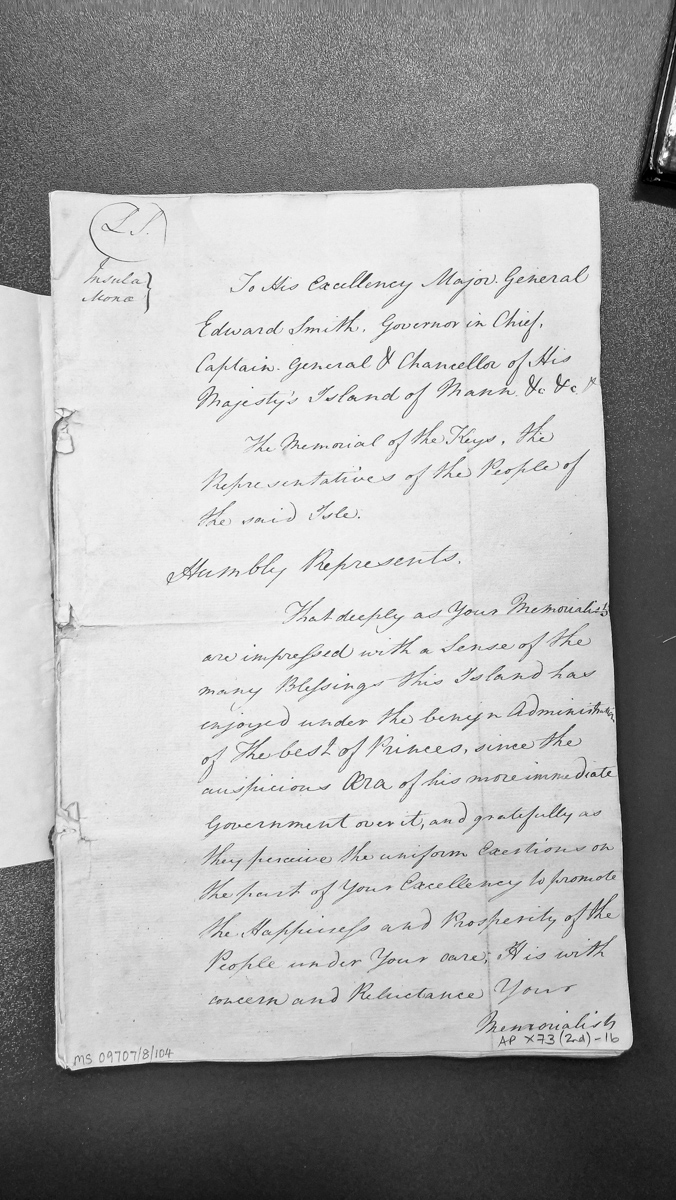 L.S.
Insula }
Monæ
To His Excellency Major General
Edward Smith, Governor in Chief,
Captain General & Chancellor of His
Majesty's Island of Mann &c &c &
The Memorial of the Keys, the
Representatives of the People of
the said Isle.
Humbly Represents.
That deeply as Your Memorialists
are impressed with a Sense of the
many Blessings this Island has
enjoyed under the benign Administration
of the best of Princes, since the
auspicious Æra of his more immediate
Government over it, and gratefully as
they perceive the uniform Exertions on
the part of Your Excellency to promote
the Happiness and Prosperity of the
People under Your care; It is with
concern and Reluctance Your
Memorialists
AP X73 (2nd) - 16
MS 09707/8/104